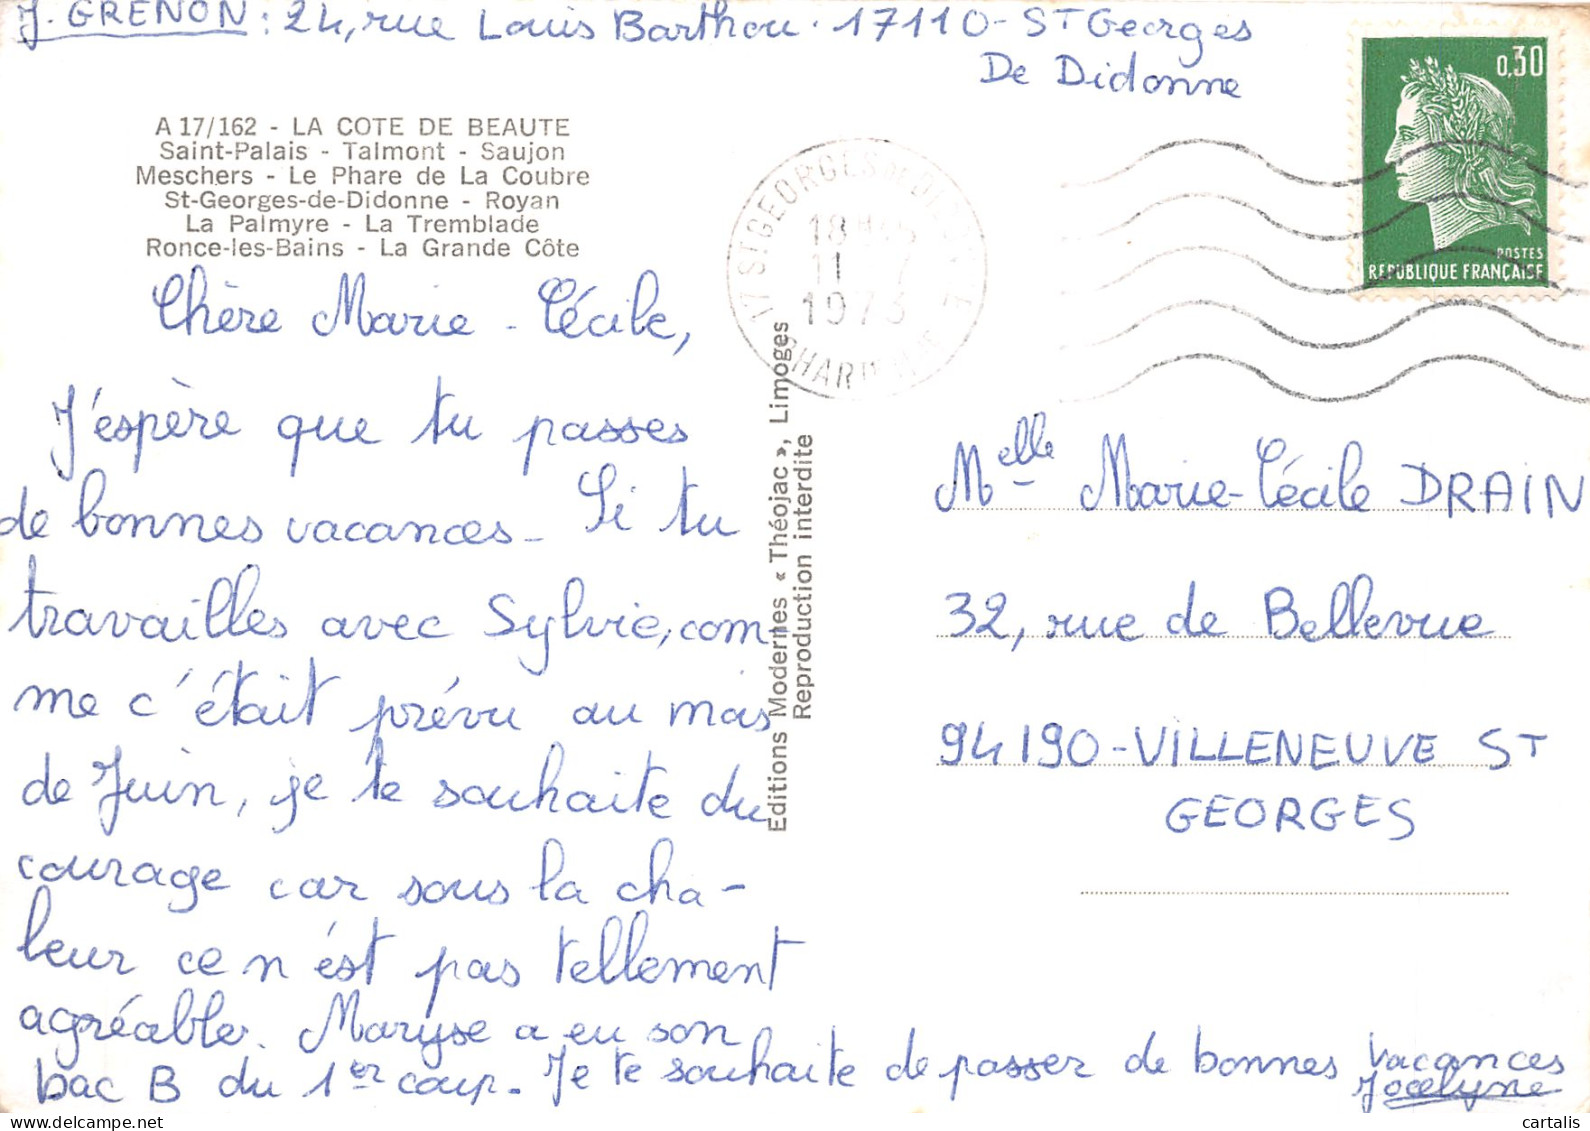 J. GRENON : 24, rue Louis Barthou. 17110 - ST Georges
De Didonne
0,30
POSTES
REPUBLIQUE FRANÇAISE
A 17/162 - LA COTE DE BEAUTE
Saint-Palais - Talmont - Saujon
Meschers - Le Phare de La Coubre
St-Georges-de-Didonne - Royan
La Palmyre - La Tremblade
Ronce-les-Bains - La Grande Côte
17 ST GEORGES DE DIDONNE
18H
11 7
1973
Chère Marie-Cécile,
J'espère que tu passes
de bonnes vacances - Si tu
travailles avec Sylvie, com-
me c'était prévu au mois
de Juin, je te souhaite du
courage car sous la cha-
leur ce n'est pas tellement
agréable. Maryse a eu son
bac B du 1er coup. Je te souhaite de passer de bonnes vacances
Jocelyne
Editions Modernes « Théojac », Limoges
Reproduction interdite
Melle Marie-Cécile DRAIN
32, rue de Bellevue
94190 - VILLENEUVE ST
GEORGES
cartalis